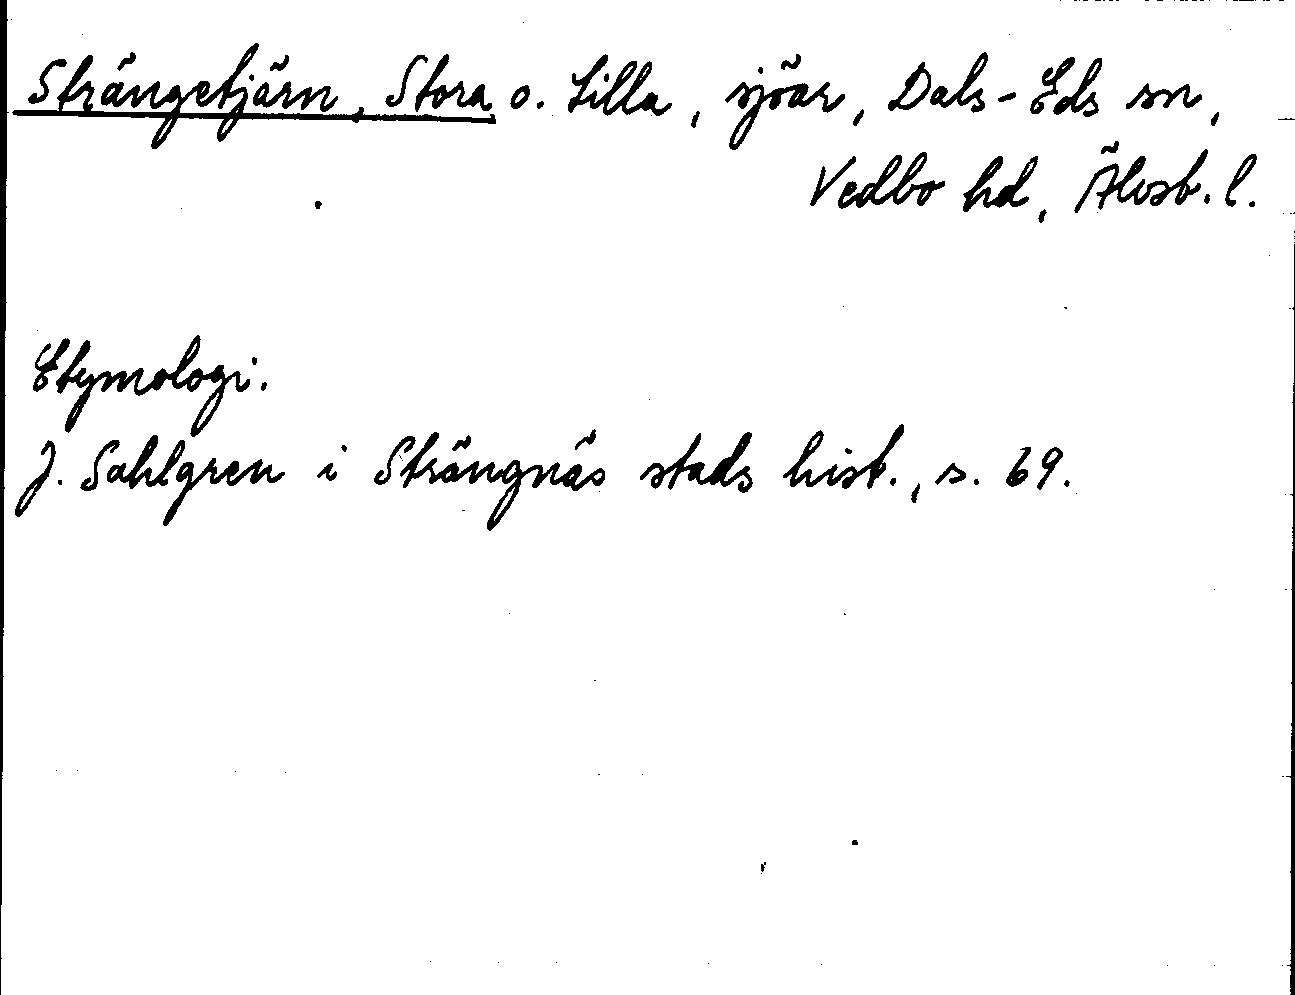 Strängetjärn, Stora o. Lilla, sjöar, Dals-Eds sn,
Vedbo hd, Älvsb. l.
Etymologi.
J. Sahlgren i Strängnäs stads hist., s. 69.